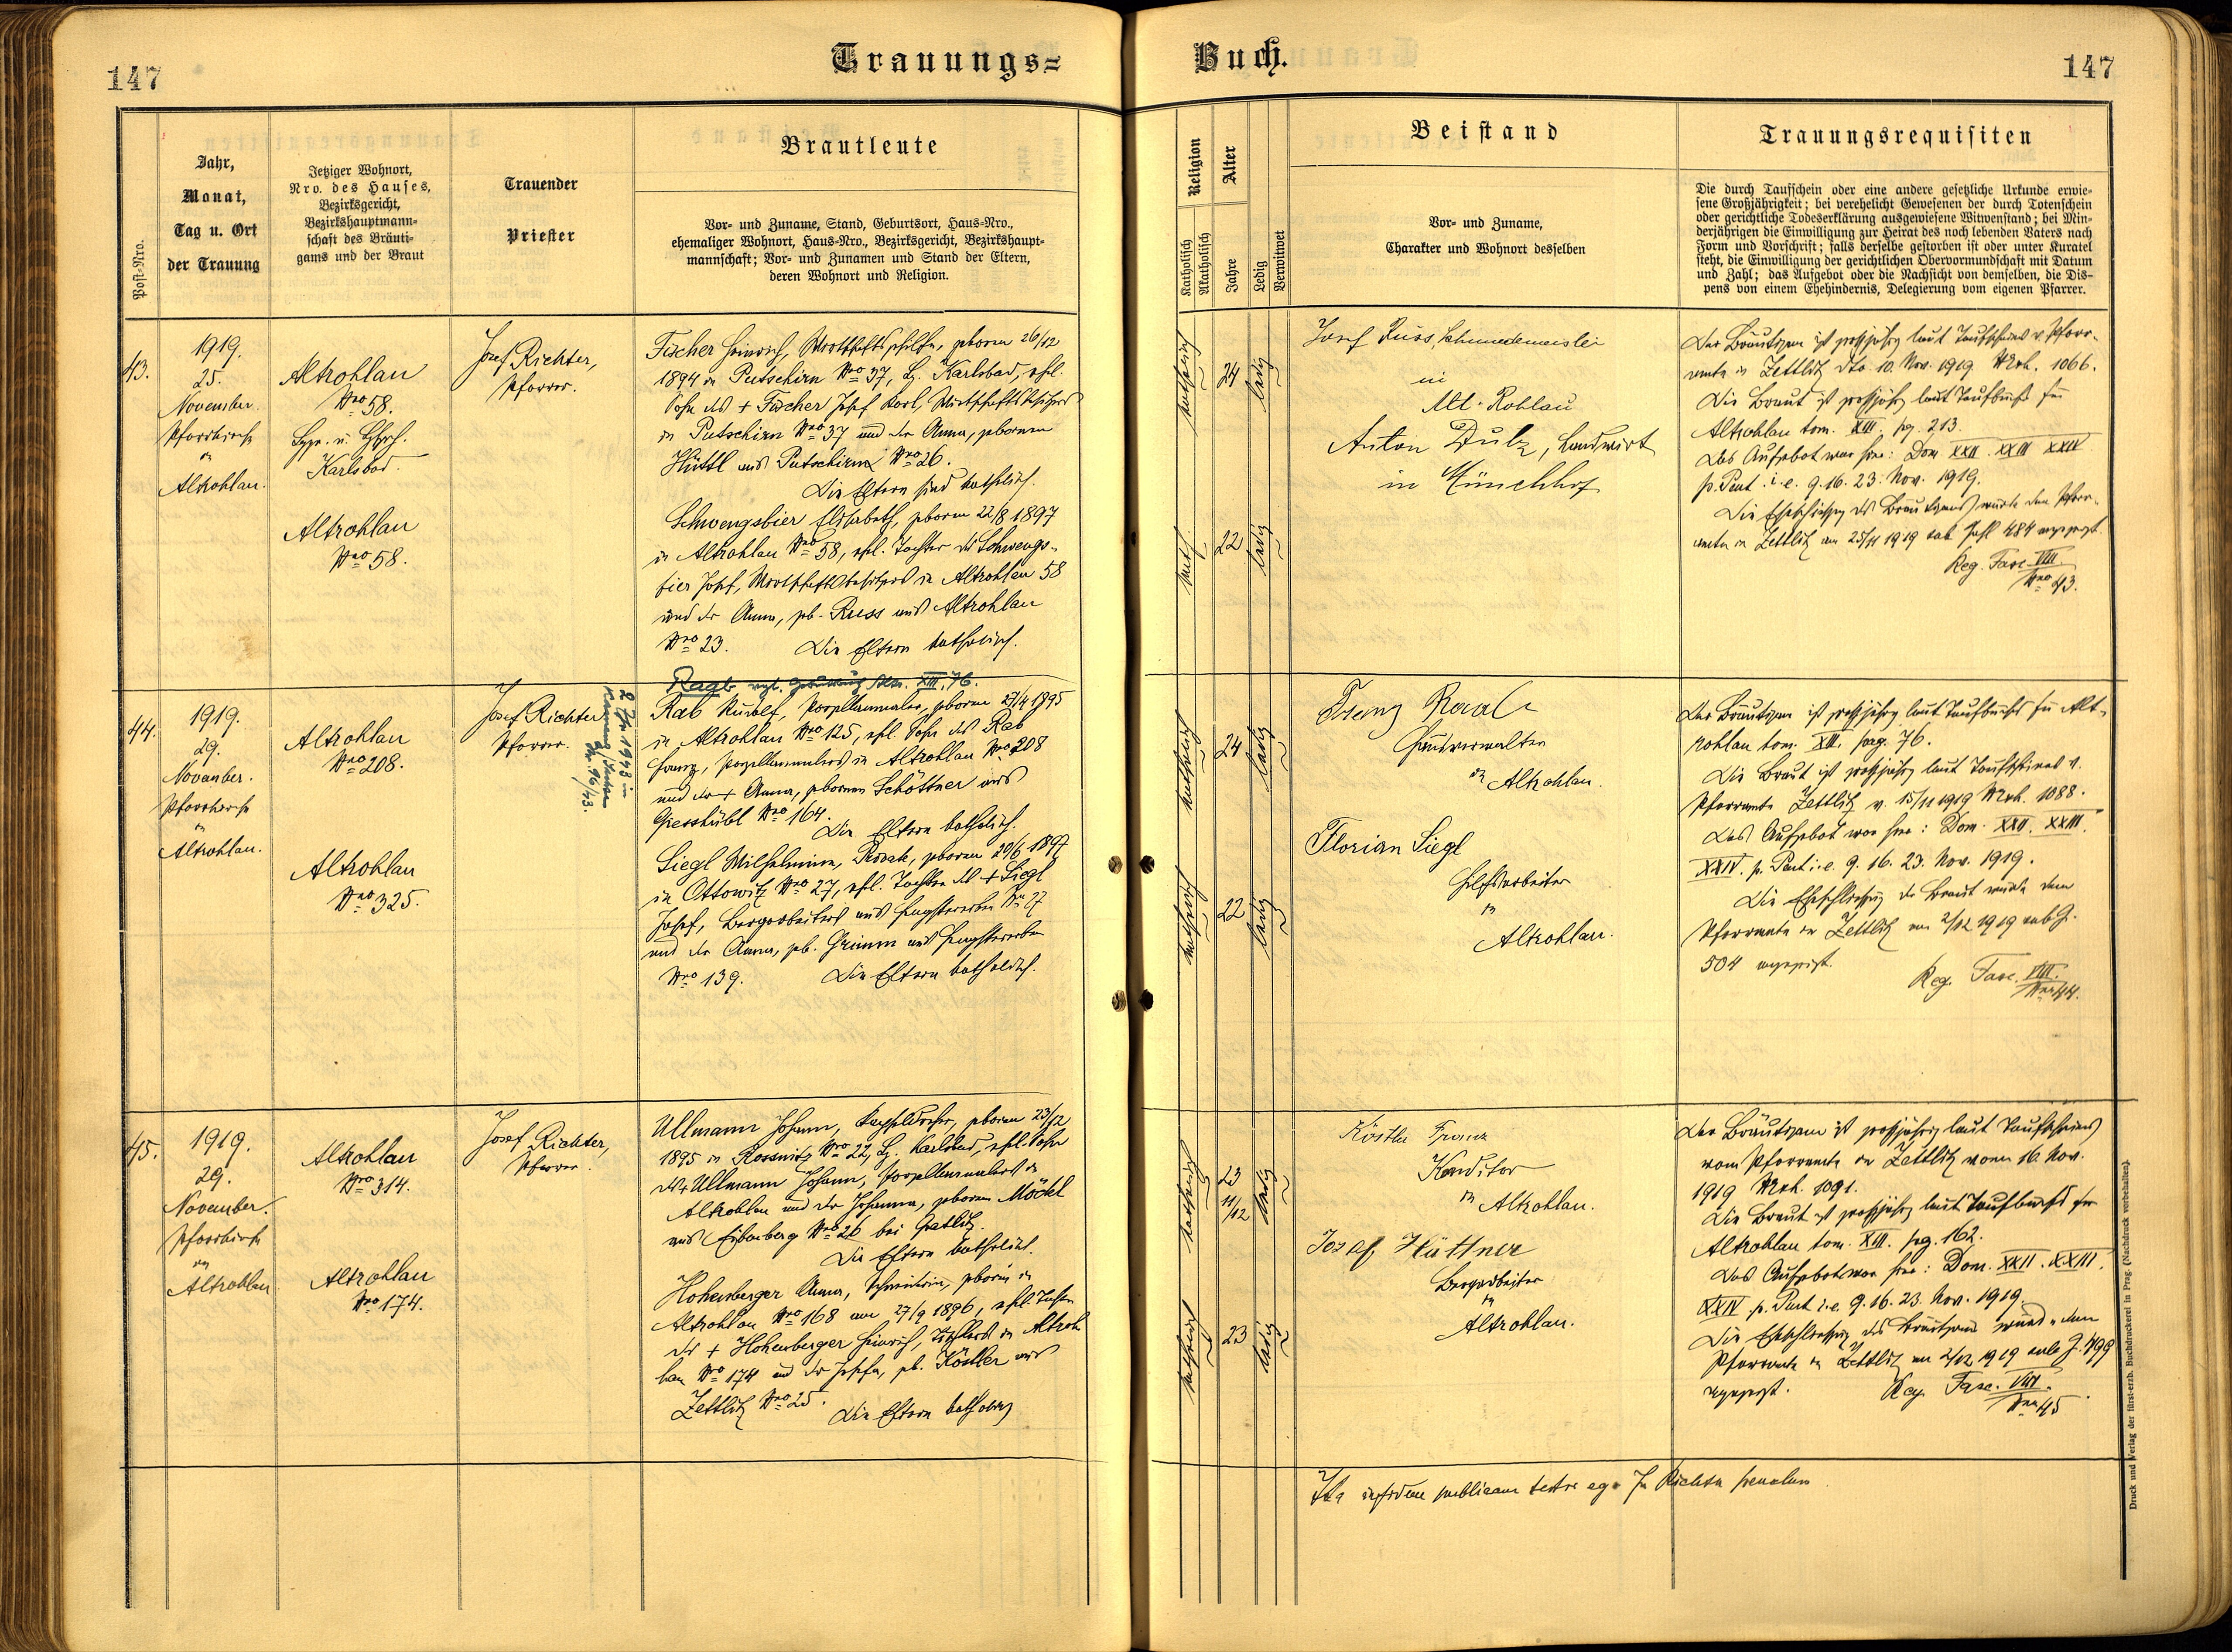 147
Trauungs=
Buch.
147
Post-Nro.
Jahr,
Monat,
Tag u. Ort
der Trauung
Jetziger Wohnort,
Nro. des Hauses,
Bezirksgericht,
Bezirkshauptmann-
schaft des Bräuti-
gams und der Braut
Trauender
Priester
Brautleute
Vor- und Zuname, Stand, Geburtsort, Haus-Nro.,
ehemaliger Wohnort, Haus-Nro., Bezirksgericht, Bezirkshaupt-
mannschaft; Vor- und Zunamen und Stand der Eltern,
deren Wohnort und Religion.
Religion
Katholisch
Akatholisch
Alter
Jahre
Ledig
Verwitwet
Beistand
Vor- und Zuname,
Charakter und Wohnort desselben
Trauungsrequisiten
Die durch Taufschein oder eine andere gesetzliche Urkunde erwie-
sene Großjährigkeit; bei verehelicht Gewesenen der durch Totenschein
oder gerichtliche Todeserklärung ausgewiesene Witwenstand; bei Min-
derjährigen die Einwilligung zur Heirat des noch lebenden Vaters nach
Form und Vorschrift; falls derselbe gestorben ist oder unter Kuratel
steht, die Einwilligung der gerichtlichen Obervormundschaft mit Datum
und Zahl; das Aufgebot oder die Nachsicht von demselben, die Dis-
pens von einem Ehehindernis, Delegierung vom eigenen Pfarrer.
43.
1919.
25.
November.
Pfarrkirche
in
Altrohlau.
Altrohlau
Nro 58.
Karlsbad.
Altrohlau
Nro 58.
Josef Richter,
Pfarrer.
Fischer Heinrich, Wirtschaftsgehilfe, geboren 26/12
1894 in Putschirn Nro 37, Bz. Karlsbad, ehel.
Sohn des + Fischer Josef Karl, Wirtschaftsbesitzers
in Putschirn Nro 37 und der Anna, geborenen
Hüttl aus Putschirn Nro 26.
Die Eltern sind katholisch.
Schwengsbier Elisabeth, geboren 22/8 1897
in Altrohlau Nro 58, ehel. Tochter des Schwengs-
bier Josef, Wirtschaftsbesitzers in Altrohlau 58
und der Anna, geb. Russ aus Altrohlau
Nro 23. Die Eltern katholisch.
katholisch
24
ledig
kath.
22
ledig
Josef Russ, Schmiedemeister
in
Alt-Rohlau
Anton Dulz, Landwirt
in Münchhof
Der Bräutigam ist großjährig laut Taufscheins v. Pfarr-
amte in Zettlitz dto 10. Nov. 1919 Mrk. 1066.
Die Braut ist großjährig laut Taufbuchs für
Altrohlau tom. XIII. pag. 213.
Das Aufgebot war hier: Dom XXII. XXIII XXIV
p. Pent. i. e. 9. 16. 23. Nov. 1919.
Die Eheschließung des Bräutigams wurde dem Pfarr-
amte in Zettlitz am 25/11 1919 sub Zahl 484 angezeigt.
Reg. Fasc. VIII
Nro 43.
44.
1919.
29.
November.
Pfarrkirche
in
Altrohlau.
Altrohlau
Nro 208.
Altrohlau
Nro 325.
Josef Richter
Pfarrer.
1943 in
96/43.
Raab XIII, 76.
Rab Rudolf, Porzellanmaler, geboren 27/4 1895
in Altrohlau Nro 125, ehel. Sohn des Rab
Franz, Porzellanmalers in Altrohlau Nro 208
und der + Anna, geborenen Schöttner aus
Giesshübl Nro 164.
Die Eltern katholisch.
Siegl Wilhelmine, Private, geboren 20/6 1897
in Ottowitz Nro 27, ehel. Tochter des + Siegl
Josef, Bergarbeiters aus Nro 27
und der Anna, geb. Grimm aus
Nro 139. Die Eltern katholisch.
katholisch
24
ledig
katholisch
22
ledig
Franz Raab
Hausverwalter
in Altrohlau.
Florian Siegl
Hilfsarbeiter
in
Altrohlau.
Der Bräutigam ist großjährig laut Taufbuchs für Alt-
rohlau tom. XIII. pag. 76.
Die Braut ist großjährig laut Taufscheines v.
Pfarramte Zettlitz v. 15/11 1919 Mrk. 1088.
Das Aufgebot war hier: Dom. XXII. XXIII.
XXIV. p. Pent i. e. 9. 16. 23. Nov. 1919.
Die Eheschließung der Braut wurde dem
Pfarramte in Zettlitz am 2/12 1919 sub Z.
504 angezeigt.
Reg. Fasc. VIII.
Nro 44.
45.
1919.
29.
November.
Pfarrkirche
in
Altrohlau
Altrohlau
Nro 314.
Altrohlau
Nro 174.
Josef Richter,
Pfarrer.
Ullmann Johann, Kapseldreher, geboren 23/12
1895 in Rossnitz Nro 22, Bz. Karlsbad, ehel. Sohn
des + Ullmann Johann, Porzellanmalers in
Altrohlau und der Johanna, geborenen Möckl
aus Nro 26 bei
Die Eltern katholisch.
Hohenberger Anna, geboren in
Altrohlau Nro 168 am 27/9 1896, ehel. Tochter
des + Hohenberger Heinrich, Tischlers in Altroh
lau Nro 174 und der Josefa, geb. Köstler aus
Zettlitz Nro 25.
Die Eltern katholisch
katholisch
23
11/12
ledig
katholisch
23
ledig
Köstler Franz
Konditor
in Altrohlau.
Josef Hüttner
Bergarbeiter
in
Altrohlau.
Der Bräutigam ist großjährig laut Taufscheins
vom Pfarramte in Zettlitz vom 16. Nov.
1919 Mrk. 1091.
Die Braut ist großjährig laut Taufbuchs für
Altrohlau tom. XIII. pag. 162.
Das Aufgebot war hier: Dom. XXII. XXIII.
XXIV p. Pent i. e. 9. 16. 23. Nov. 1919.
Die Eheschließung des Bräutigams wurde dem
Pfarramte in Zettlitz am 2/12 1919 sub Z. 499
angezeigt. Reg. Fasc. VIII.
Nro 45
Richter
Druck und Verlag der fürst-erzb. Buchdruckerei in Prag. (Nachdruck vorbehalten).